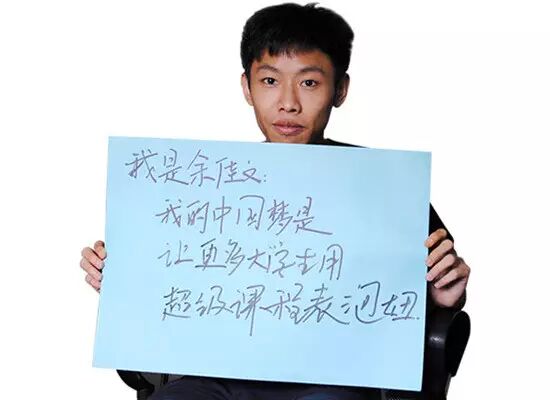 我是余佳文:
我的中国梦是
让更多大学生用
超级课程表泡妞